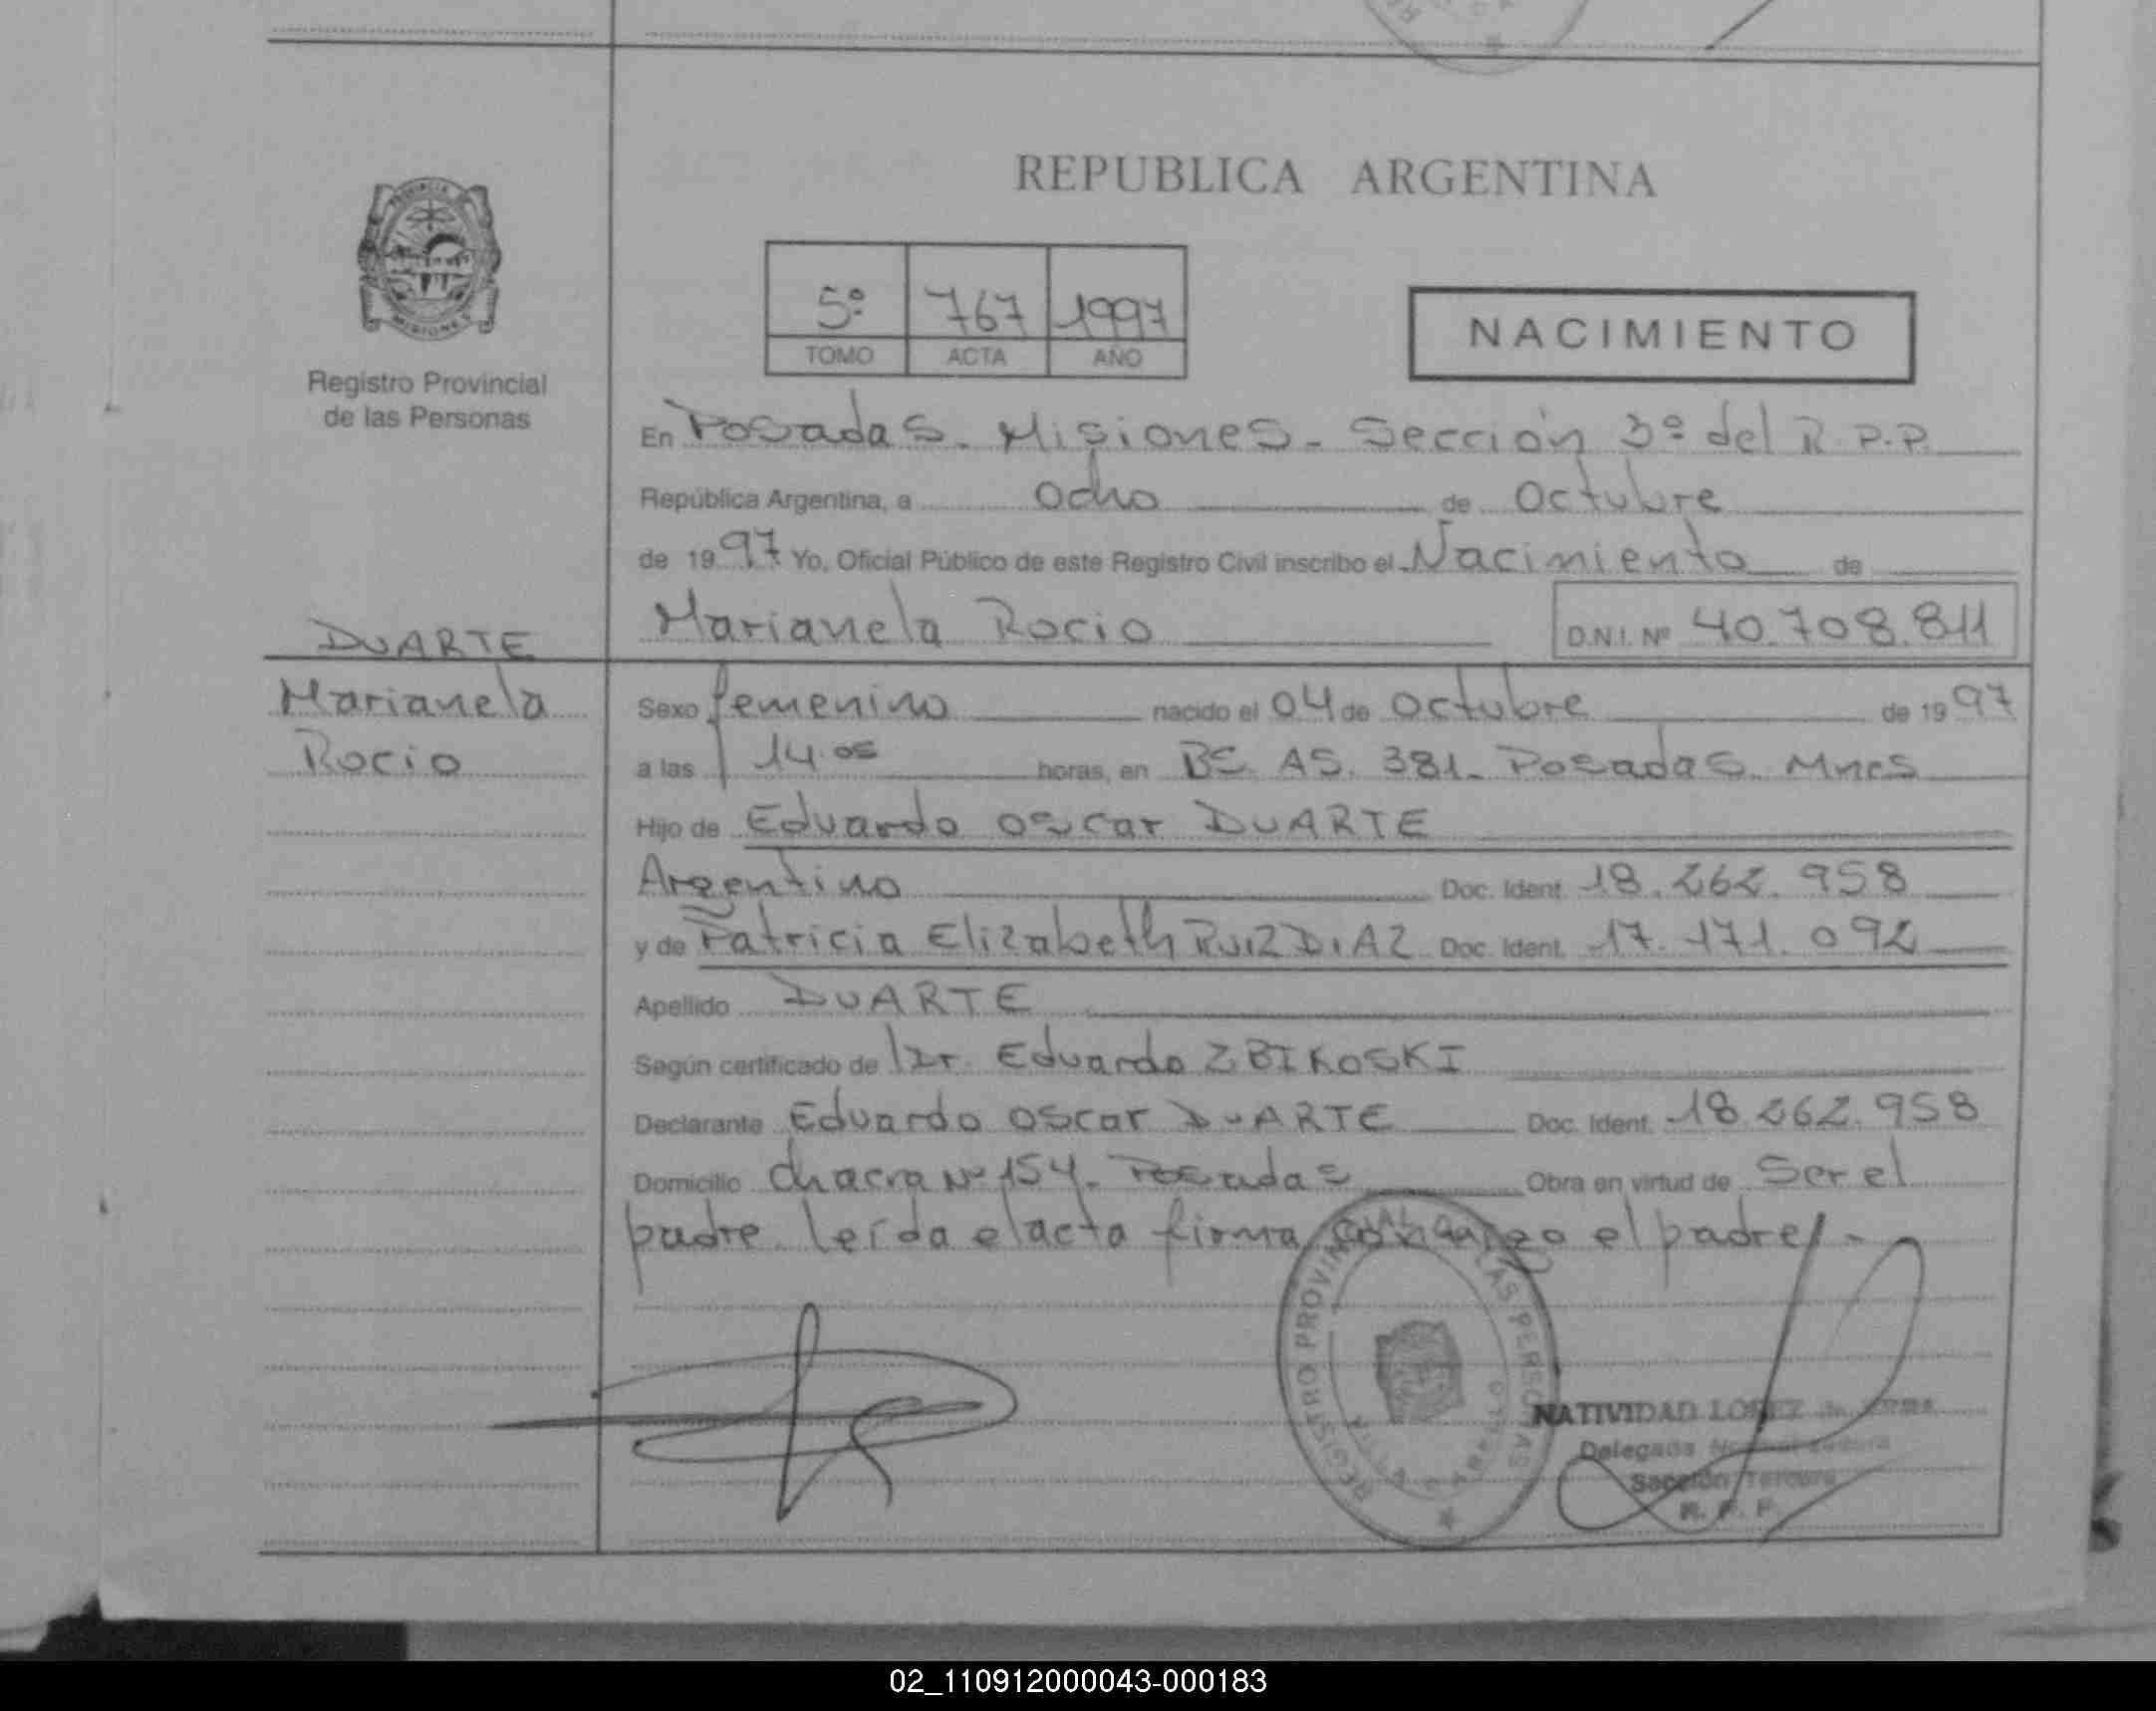 REPUBLICA ARGENTINA
5º 767 1997
TOMO ACTA AÑO
NACIMIENTO
PROVINCIA
MISIONES
Registro Provincial
de las Personas
En Posadas. Misiones. Sección 3º del R.P.P.
República Argentina, a ocho de Octubre
de 1997 Yo, Oficial Público de este Registro Civil inscribo el Nacimiento de
Marianela Rocio D.N.I. Nº 40.708.811
DUARTE
Marianela
Rocio
Sexo femenino nacido el 04 de Octubre de 1997
a las 14.05 horas, en BS. AS. 381. Posadas. Mnes
Hijo de Eduardo Oscar DUARTE
Argentino Doc. Ident. 18.262.958
y de Patricia Elizabeth RUIZ DIAZ Doc. Ident. 17.171.092
Apellido DUARTE
Según certificado de Dr. Eduardo ZBIKOSKI
Declarante Eduardo Oscar DUARTE Doc. Ident. 18.262.958
Domicilio Chacra Nº 154. Posadas Obra en virtud de Ser el
padre. leída el acta firma conmigo el padre.-
REGISTRO PROVINCIAL DE LAS PERSONAS
NATIVIDAD LOPEZ
Delegada
Sección Tercera
R. P. P.
02_110912000043-000183